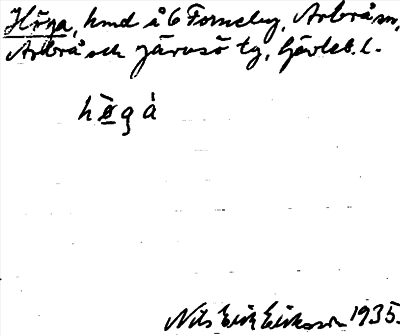 Höga, hmd å 6 Forneby, Arbrå sn,
Arbrå och Järvsö tg, Gävleb. l.
hø̀gá
Nils Erik Eriksson 1935.